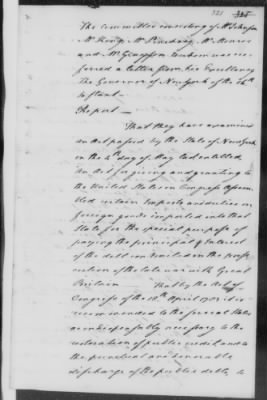 321
The Committee consisting of Mr Johnson
Mr King, Mr Pinckney, Mr Monroe
and Mr Grayson to whom was re-
ferred a letter from his Excellency
The Governor of New York of the 16th
Instant.
Report
That they have examined
an Act passed by the State of New York
on the 4th day of May last entitled
An Act for giving and granting to
the United States in Congress Assem-
bled certain Imposts and duties on
foreign goods imported into that
State for the special purpose of
paying the principal & Interest
of the debt contracted in the prose-
cution of the late war with Great
Britain That by the Act of
Congress of the 18th April 1783 it is
recommended to the several States
as indispensably necessary to the
restoration of public credit and to
the punctual and honorable
discharge of the public debts, to